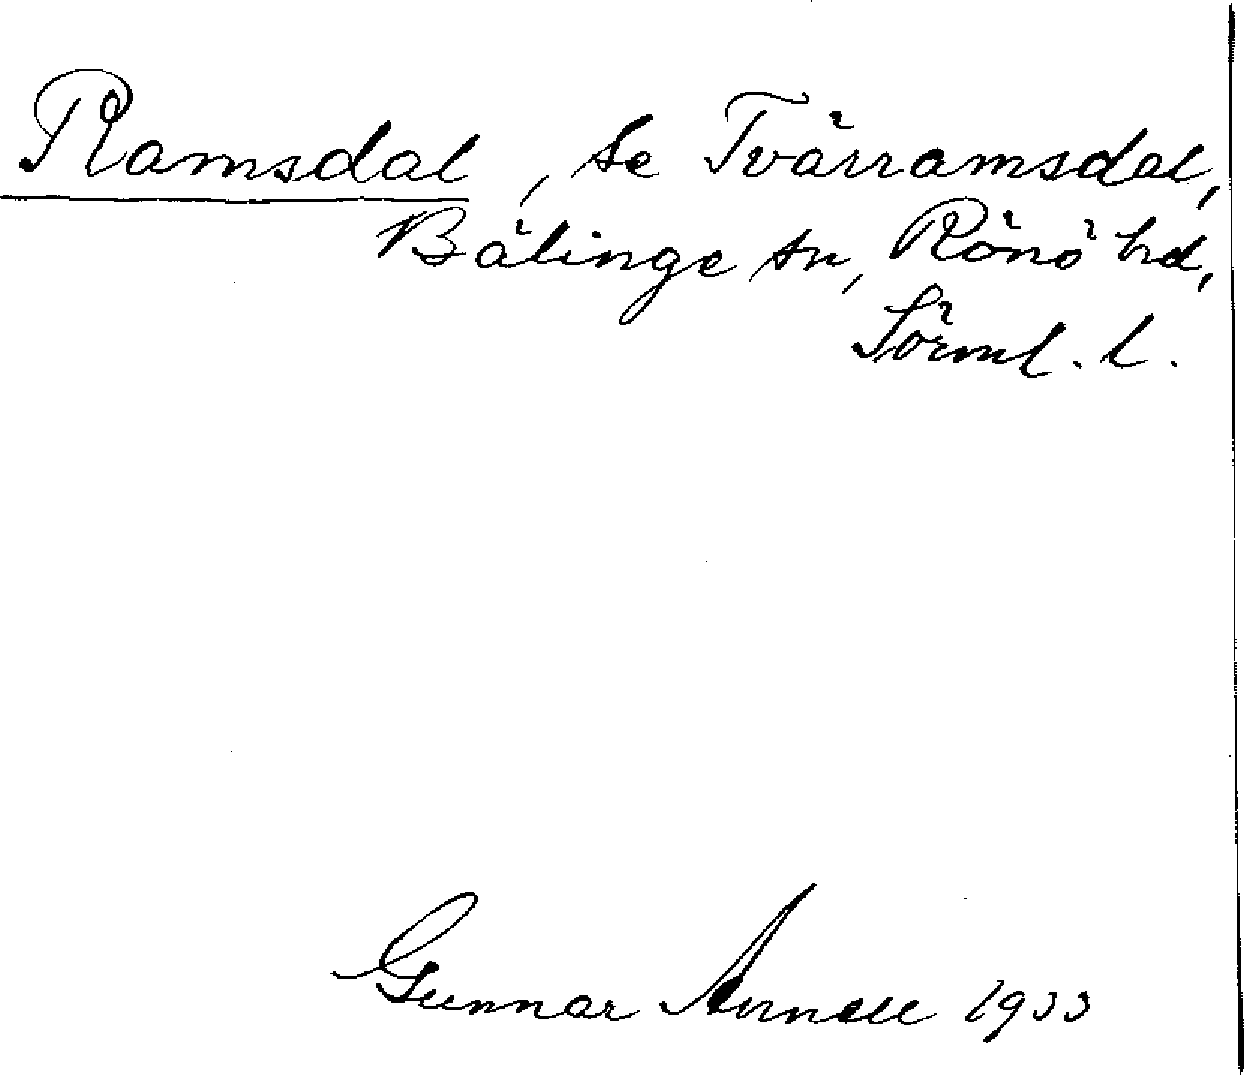 Ramsdal, se Tvärramsdal,
Bälinge sn, Rönö hd,
Sörml. l.
Gunnar Arnell 1933